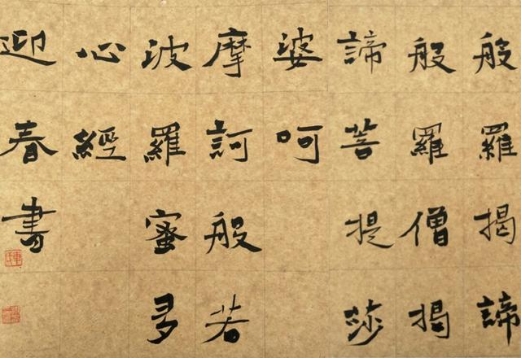 般羅揭諦
般羅僧揭
諦菩提莎
婆呵
摩訶般若
波羅蜜多
心經
迎春書